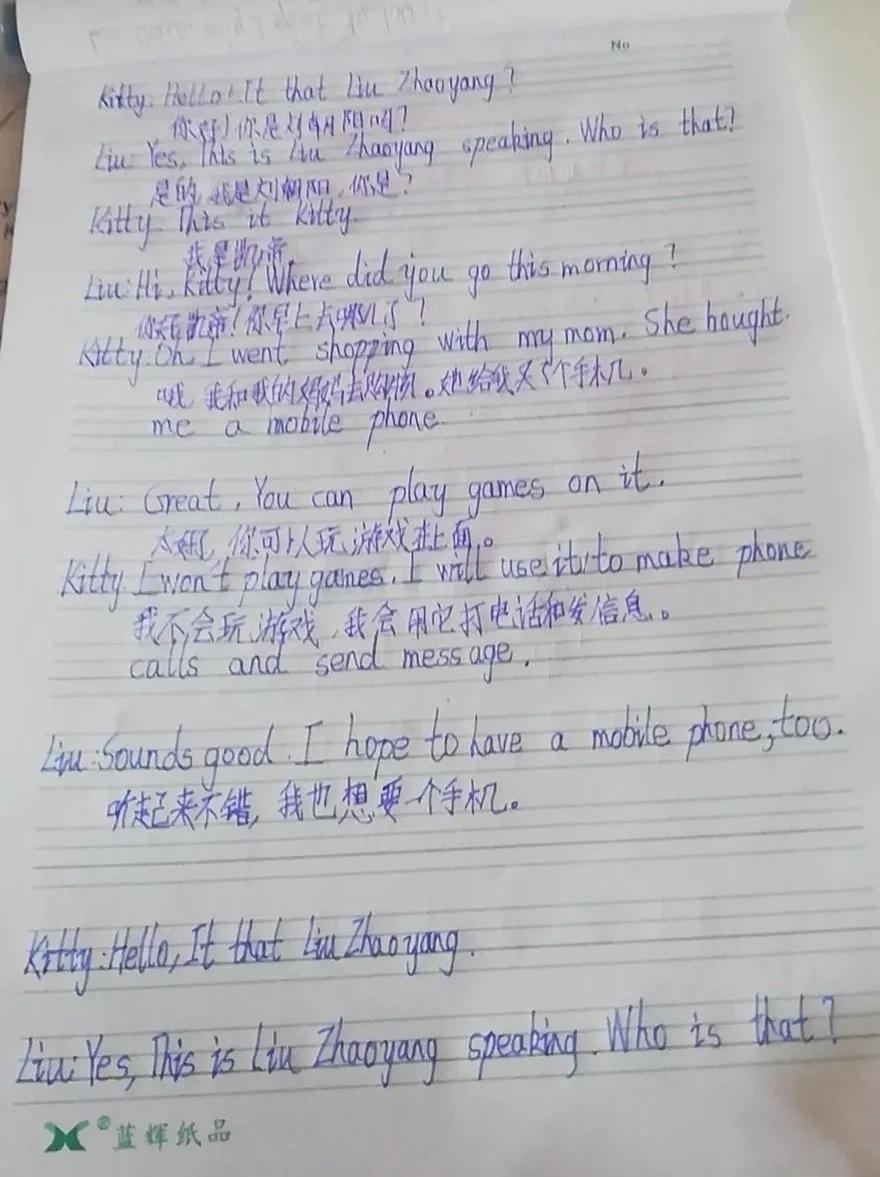 No
Kitty: Hello! It that Liu Zhaoyang?
你好!你是刘朝阳吗?
Liu: Yes, This is Liu Zhaoyang speaking. Who is that?
是的,我是刘朝阳,你是?
Kitty: This it kitty.
我是凯蒂。
Liu: Hi, Kitty! Where did you go this morning?
你好凯蒂!你早上去哪儿了?
Kitty: Oh, I went shopping with my mom. She bought.
哦,我和我的妈妈去购物。她给我买了个手机。
me a mobile phone
Liu: Great, You can play games on it.
太好了,你可以玩游戏在上面。
Kitty I won't play games. I will use it to make phone
我不会玩游戏,我会用它打电话和发信息。
calls and send message.
Liu: Sounds good. I hope to have a mobile phone, too.
听起来不错,我也想要一个手机。
Kitty: Hello, It that Liu Zhaoyang.
Liu: Yes, This is Liu Zhaoyang speaking. Who is that?
®蓝辉纸品